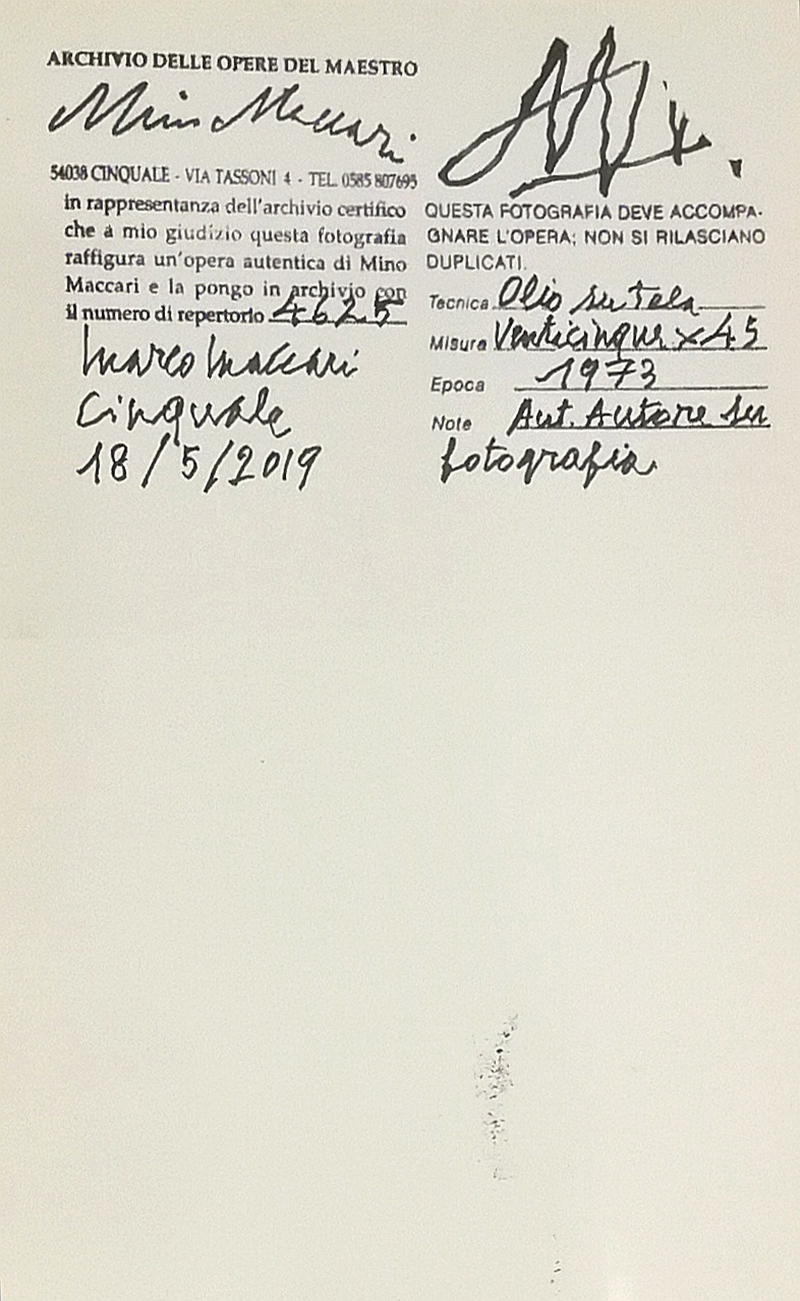 ARCHIVIO DELLE OPERE DEL MAESTRO
Mino Maccari
54038 CINQUALE - VIA TASSONI 4 - TEL. 0585 807695
in rappresentanza dell'archivio certifico
che a mio giudizio questa fotografia
raffigura un'opera autentica di Mino
Maccari e la pongo in archivio con
il numero di repertorio 4625
Marco Maccari
Cinquale
18/5/2019
QUESTA FOTOGRAFIA DEVE ACCOMPA-
GNARE L'OPERA; NON SI RILASCIANO
DUPLICATI.
Tecnica Olio su Tela
Misura Venticinque x 45
Epoca 1973
Note Aut. Autore su
fotografia